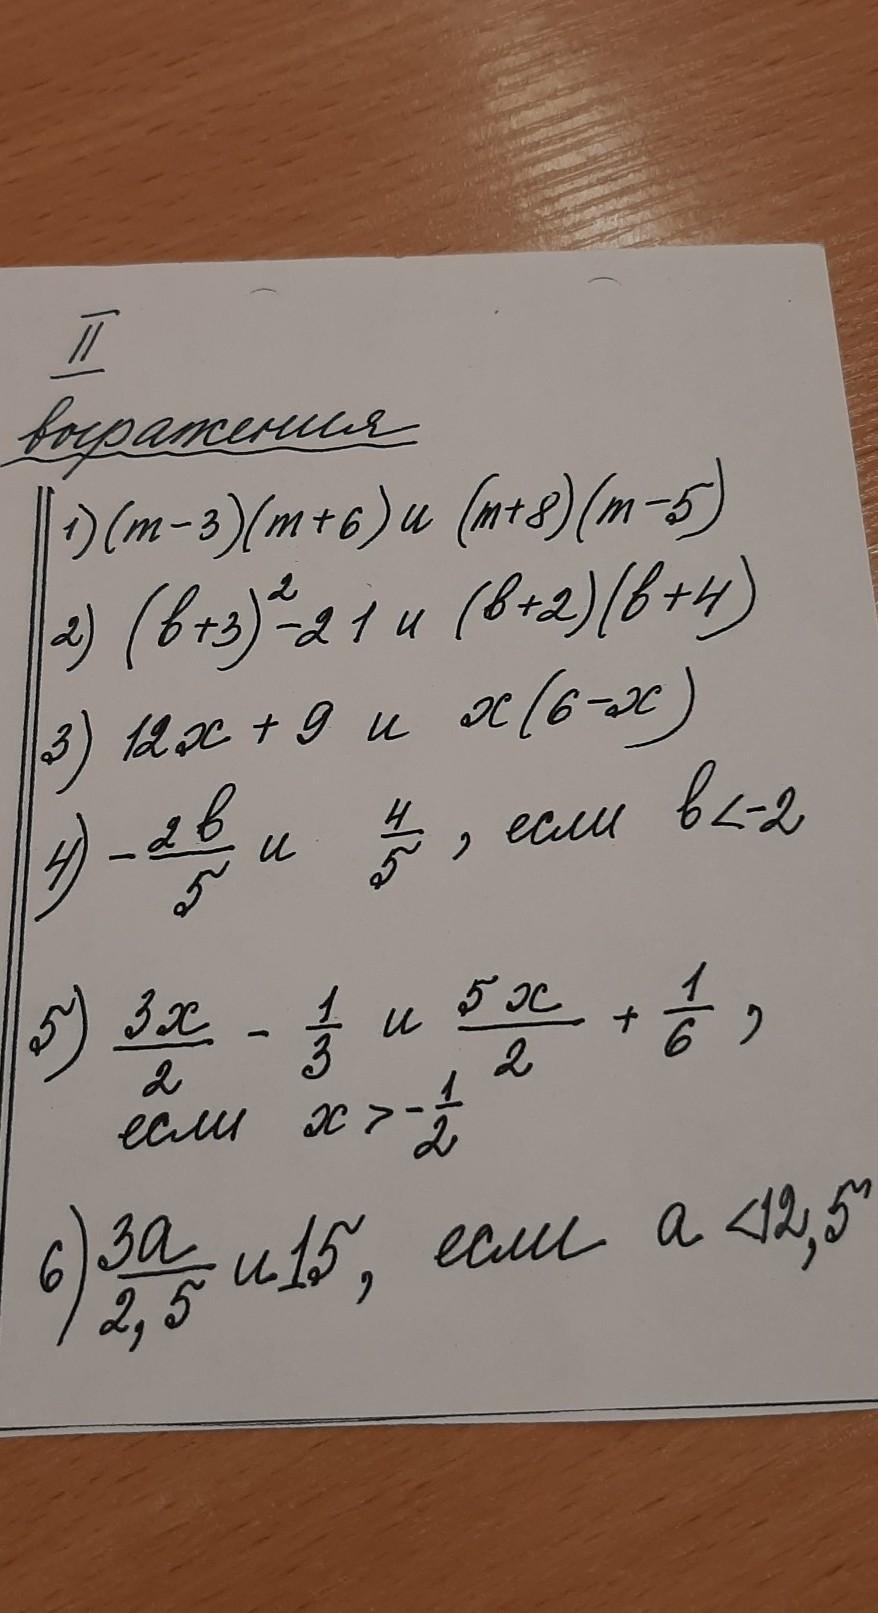 II
выражения
1) (m-3)(m+6) и (m+8)(m-5)
2) (b+3)²-21 и (b+2)(b+4)
3) 12x+9 и x(6-x)
4) -2b/5 и 4/5, если b<-2
5) 3x/2 - 1/3 и 5x/2 + 1/6,
если x>-1/2
6) 3a/2,5 и 15, если a<12,5